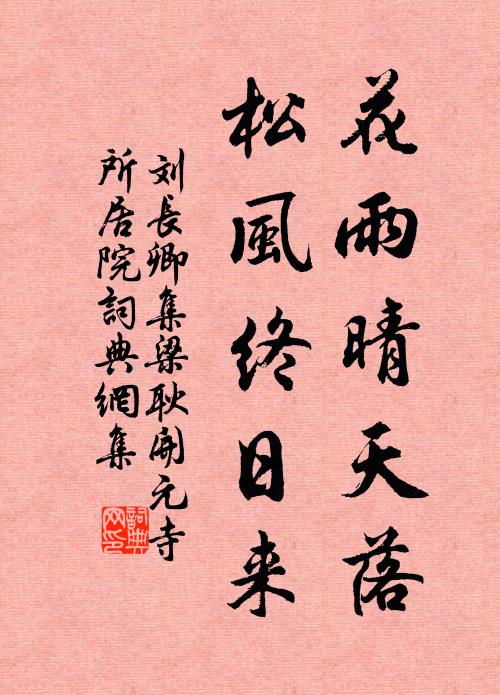 花雨晴天落
松風終日来
刘長卿集梁耿開元寺
所居院詞典網集
詞典
网印